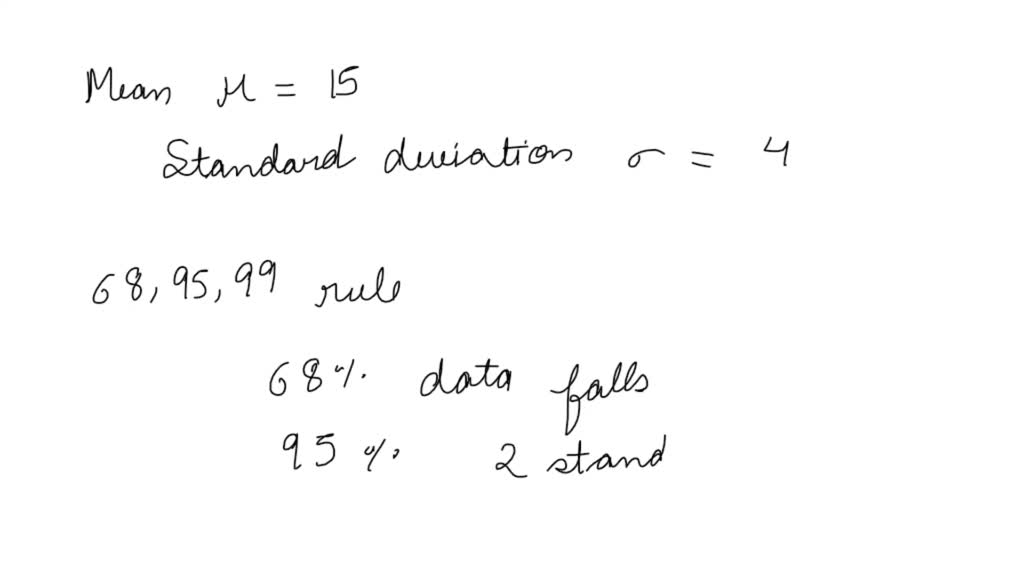 Mean μ = 15
Standard deviation σ = 4
68, 95, 99 rule
68% data falls
95% 2 stand